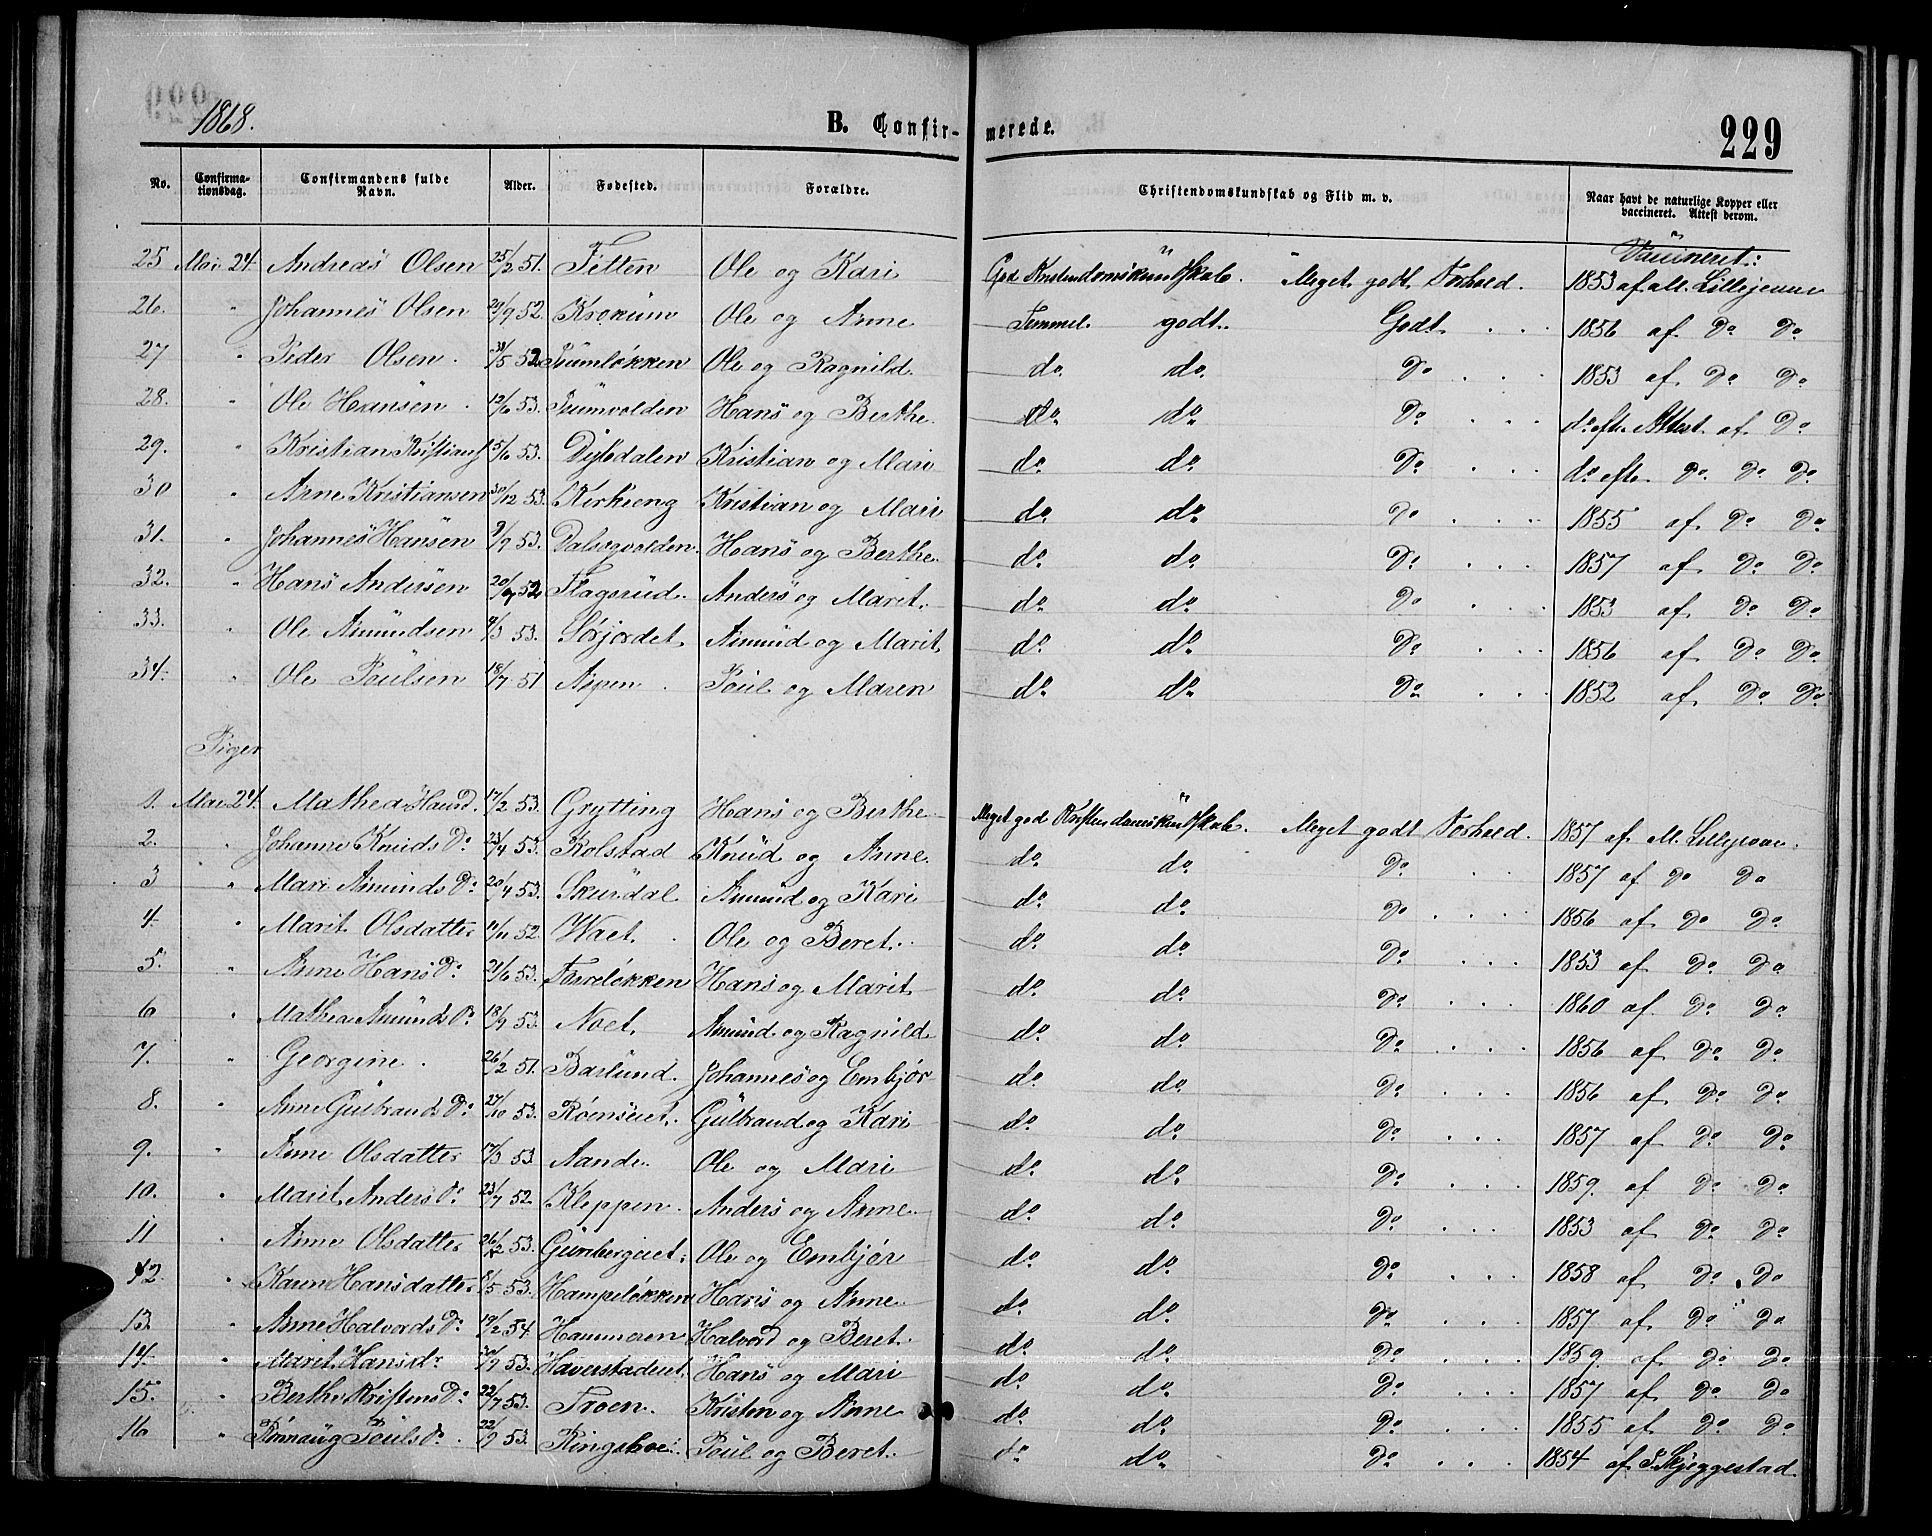 1868.
B. Confir-
merede.
229
No. Confirma-tionsdag. Confirmandens fulde Navn. Alder. Fødested. Forældre. Christendomskundskab og Flid m. v. Naar havt de naturlige Kopper eller vaccineret. Attest derom.
Vaccineret:
25 Mai 24. Andreas Olsen 25/2 51. Fetten Ole og Kari God Kristendomskundskab. Meget godt Forhold. 1853 af
26. " Johannes Olsen 29/9 52. Krokum Ole og Anne Temmel. godt. Godt 1856 af Do Do
27 " Peder Olsen. 31/5 52 Ole og Ragnild do. do. Do 1853 af Do Do
28. " Ole Hansen. 12/6 53. Hans og Berthe. do. do. Do do. efter Attest af Do
29. " Kristian Kristians 15/6 53. Kristian og Mari do. do. Do do. efter Do Do Do
30 " Arne Kristiansen 30/12 53. Kirkeeng Kristian og Mari do. do. Do 1855 af Do Do
31. " Johannes Hansen 9/9 53. Dalsegvolden. Hans og Berthe. do. do. Do 1857 af Do Do
32. " Hans Andersen 52 Flagsrud. Anders og Marit. do. do. Do 1853 af Do Do
33. " Ole Amundsen 4/3 53. Sørjordet. Amund og Marit do. do. Do 1856 af Do Do
34. " Ole Poulsen 18/7 51 Aspen. Poul og Maren do. do. Do 1852 af Do Do
Piger
1. Mai 24. Mathea Hansd. 17/2 53. Grytting Hans og Berthe Meget god Kristendomskundskab. Meget godt Forhold. 1857 af M.
2. " Johanne Knuds Do. 23/4 53. Kolstad Knud og Anne. do. do. Do 1857 af Do Do
3 " Mari Amunds Do. 20/4 53. Skurdal Amund og Kari do. do. Do 1856 af Do Do
4. " Marit Olsdatter 11/11 52. Waet. Ole og Beret. do. do. Do 1853 af Do Do
5. " Anne Hans Do. 21/6 53. Hans og Marit do. do. Do 1860 af Do Do
6 " Mathea Amunds Do. 18/9 53. Noet. Amund og Ragnild do. do. Do 1856 af Do Do
7. " Georgine. 26/2 51. Baslund. Johannes og Embjør do. do. Do 1856 af Do Do
8. " Anne Gulbrands Do. 27/10 53. Gulbrand og Kari do. do. Do 1857 af Do Do
9. " Anne Olsdatter 17/3 53. Aande. Ole og Mari do. do. Do 1859. af Do Do
10. " Marit Anders Do. 23/7 52. Kleppen. Anders og Anne. do. do. Do 1853 af Do Do
11 " Anne Olsdatter 26/2 53. Gunbergeiet. Ole og Embjør do. do. Do 1858 af Do Do
12. " Karen Hansdatter 53. Hampeløkken Hans og Anne. do. do. Do 1857 af Do Do
13. " Anne Halvords Do. 19/2 54. Hammeren Halvord og Beret. do. do. Do 1859. af Do Do
14. " Maret Hansd. 53. Haverstadeiet. Hans og Mari do. do. Do 1857 af Do Do
15. " Berthe Kristens Do. 22/7 53. Troen. Kristen og Anne do. do. Do 1855 af Do Do
16 " Rønnaug Pouls D. 53. Ringeboe. Poul og Beret. do. do. Do 1854 af S. Skjeggestad